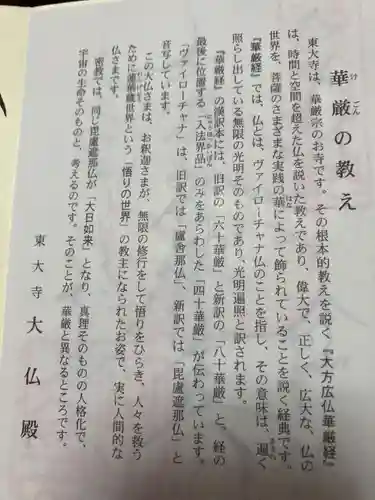 華厳の教え
けごん
東大寺は、華厳宗のお寺です。その根本的教えを説く『大方広仏華厳経』
は、時間と空間を超えた仏を説いた教えであり、偉大で、正しく、広大な、仏の
世界を、菩薩のさまざまな実践の華によって飾られていることを説く経典です。
はな
『華厳経』では、仏とは、ヴァイローチャナ仏のことを指し、その意味は、遍く
あまね
照らし出している無限の光明そのものであり、光明遍照と訳されます。
『華厳経』の漢訳本には、旧訳の「六十華厳」と新訳の「八十華厳」と、経の
最後に位置する「入法界品」のみをあらわした「四十華厳」が伝わっています。
「ヴァイローチャナ」は、旧訳では「盧舎那仏」、新訳では「毘盧遮那仏」と
音写しています。
この大仏さまは、お釈迦さまが、無限の修行をして悟りをひらき、人々を救う
ために蓮華蔵世界という「悟りの世界」の教主になられたお姿で、実に人間的な
仏さまです。
密教では、同じ毘盧遮那仏が「大日如来」となり、真理そのものの人格化で、
宇宙の生命そのものと、考えるのです。そのことが、華厳と異なるところです。
東大寺 大仏殿